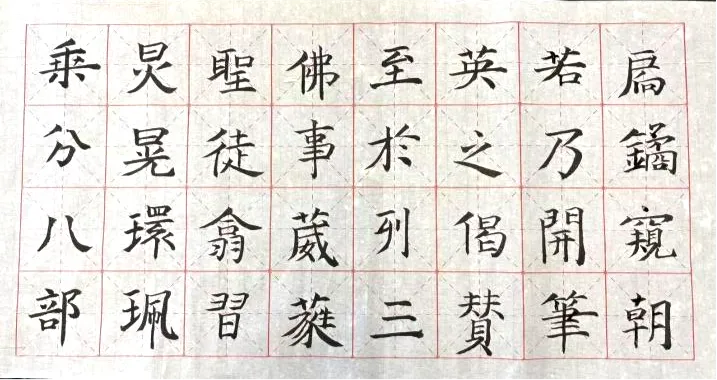 扃鐍窺朝
若乃開筆
英之偈贊
至於列三
佛事葳蕤
聖徒翕習
炅晃環珮
乘分八部